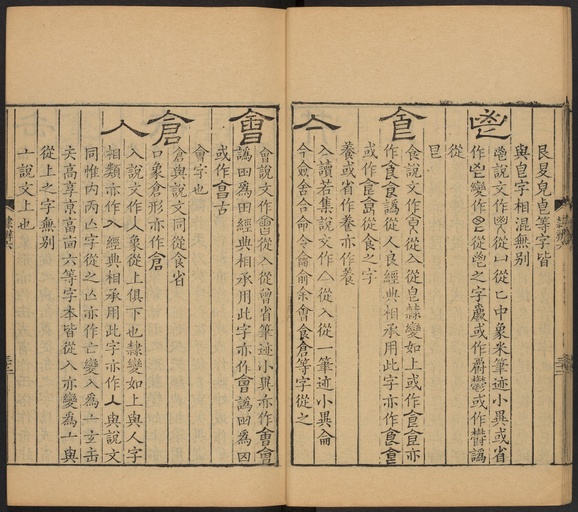 艮夏皃皀等字皆
與皀字相混無别
鬯
鬯說文作鬯從凵從匕中象米筆迹小異或省
作鬯變作鬯從鬯之字爵或作爵鬱或作欝譌
從
皀
食
食說文作食從亼從皀隸變如上或作食食亦
作食食譌從人良經典相承用此字亦作食食
或作食食從食之字
養或省作养亦作养
亼
入讀若集說文作亼從入從一筆迹小異侖
今僉舍合命令侖俞余會食倉等字從之
會
會說文作會從亼從曾省筆迹小異亦作會會
譌田爲田經典相承用此字亦作會譌田爲囟
或作會古
會字也
倉
倉與說文同從食省
口象倉形亦作倉
入
入說文作入象從上俱下也隸變如上與人字
相類亦作入經典相承用此字亦作人與說文
同惟内㒳亾字從之亾亦作亡變入爲亠玄缶
矢高享京畐㐭六等字本皆從入亦變爲亠與
從上之字無别
亠說文上也